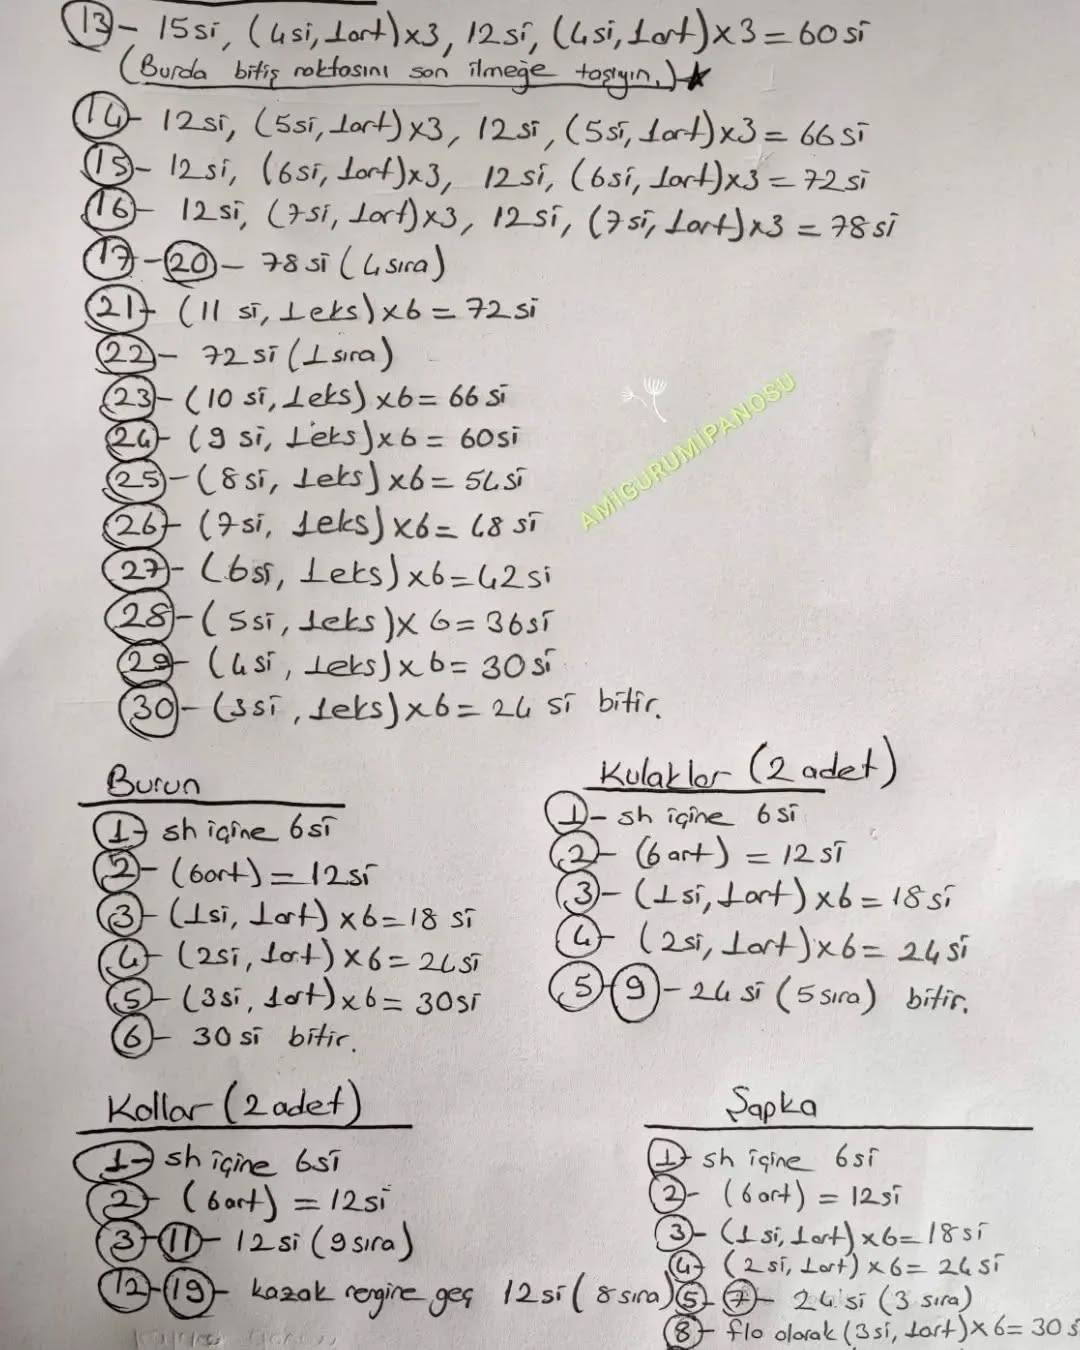 13- 15si, (4si, 1art)x3, 12si, (4si, 1art)x3 = 60si
(Burda bitiş noktasını son ilmeğe taşıyın.)★
14- 12si, (5si, 1art)x3, 12si, (5si, 1art)x3 = 66si
15- 12si, (6si, 1art)x3, 12si, (6si, 1art)x3 = 72si
16- 12si, (7si, 1art)x3, 12si, (7si, 1art)x3 = 78si
17-20- 78si (4sıra)
21- (11 si, 1eks)x6 = 72si
22- 72si (1sıra)
23- (10 si, 1eks)x6 = 66si
24- (9 si, 1eks)x6 = 60si
25- (8si, 1eks)x6 = 54si
26- (7si, 1eks)x6 = 48 si
27- (6si, 1eks)x6 = 42si
28- (5si, 1eks)x6 = 36si
29- (4si, 1eks)x6 = 30si
30- (3si, 1eks)x6 = 24 si bitir.
AMİGURUMİPANOSU
Burun
1- sh içine 6si
2- (6art) = 12si
3- (1si, 1art)x6 = 18 si
4- (2si, 1art)x6 = 24si
5- (3si, 1art)x6 = 30si
6- 30si bitir.
Kulaklar (2 adet)
1- sh içine 6si
2- (6art) = 12si
3- (1si, 1art)x6 = 18si
4- (2si, 1art)x6 = 24si
5-9- 24si (5sıra) bitir.
Kollar (2adet)
1- sh içine 6si
2- (6art) = 12si
3-11- 12si (9sıra)
12-19- kazak rengine geç 12si (8sıra)
Şapka
1- sh içine 6si
2- (6art) = 12si
3- (1si, 1art)x6 = 18si
4- (2si, 1art)x6 = 24si
5-7- 24si (3 sıra)
8- flo olarak (3si, 1art)x6 = 30 s